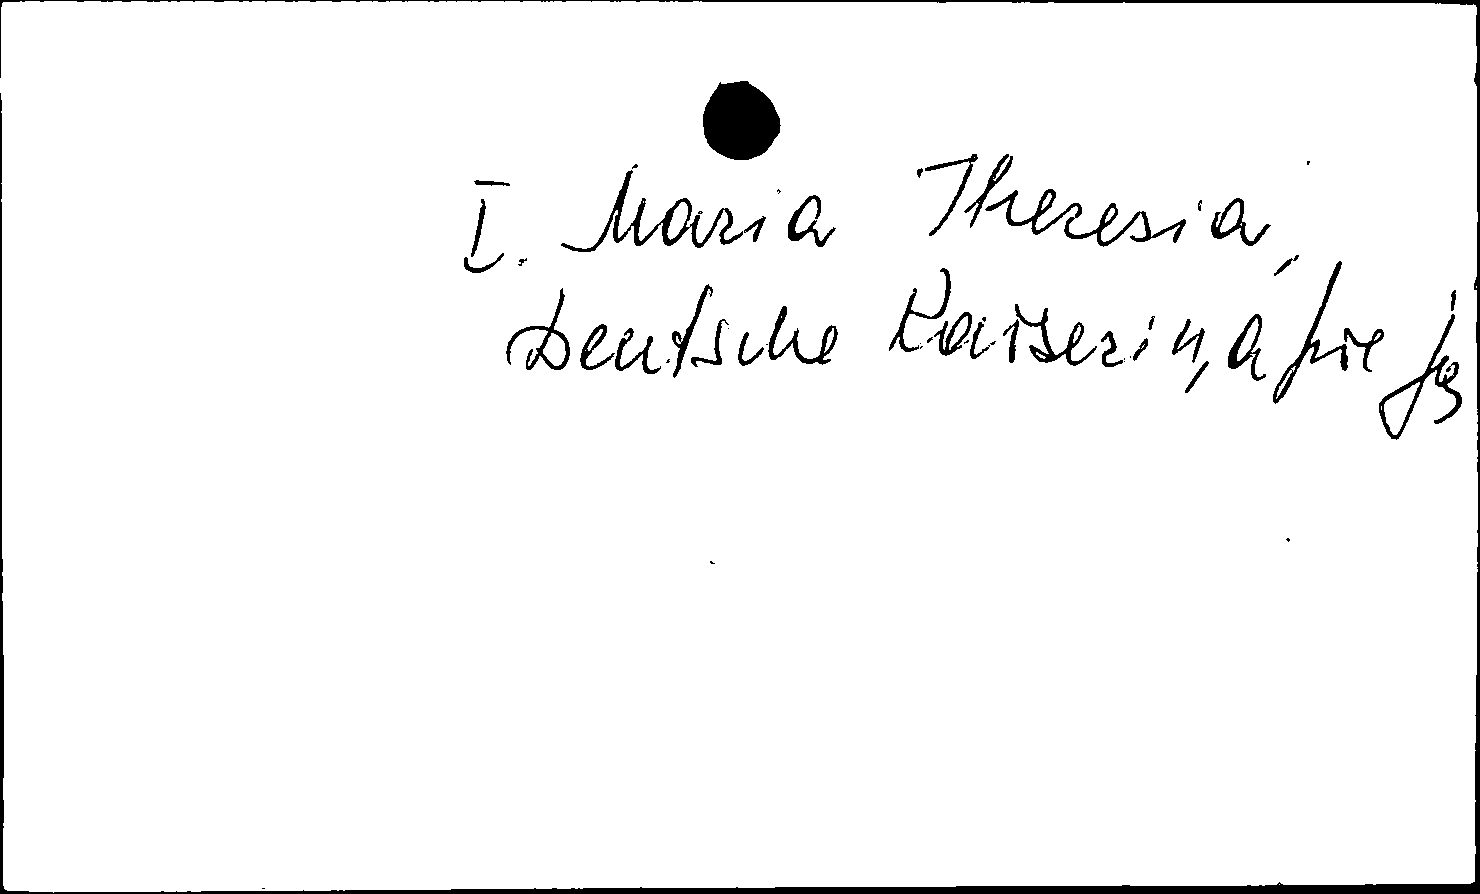 I. Maria Theresia,
Deutsche Kaiserin, a